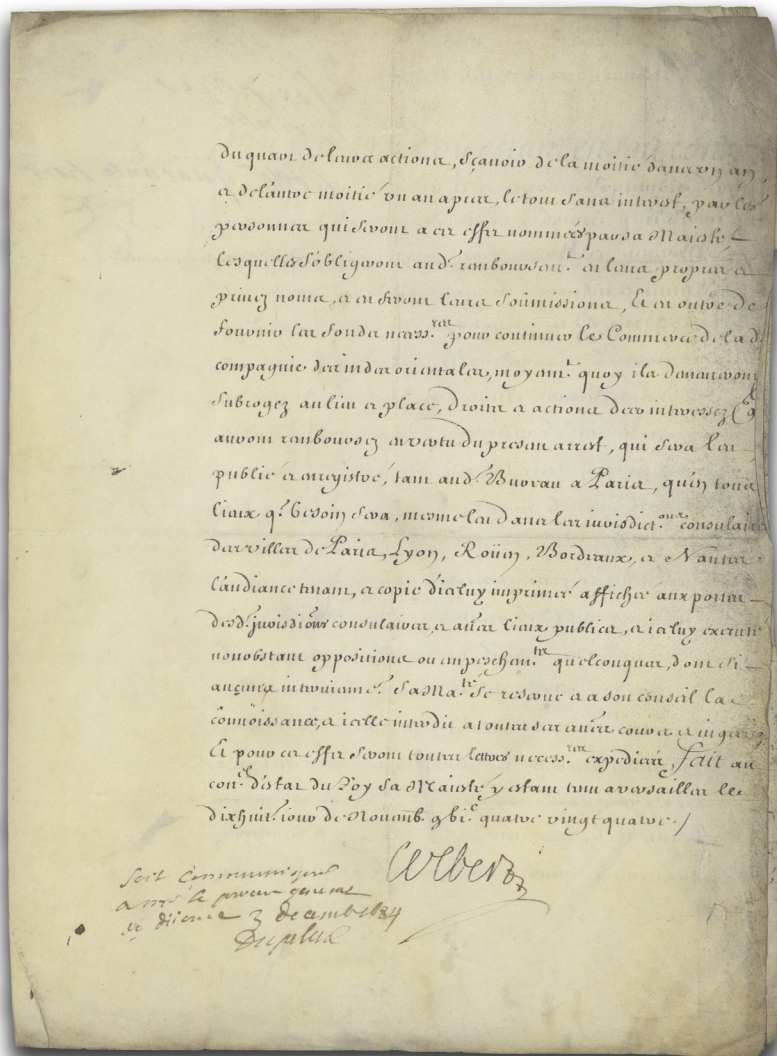 du quart de leurs actions, sçavoir de la moitié dans un an,
et de l'autre moitié un an apres, le tout sans interest, par les
personnes qui seront a cet effet nommées par sa Maiesté,
Lesquelles s'obligeront aud.t remboursem.t en leurs propres et
privez noms, et en feront leurs soûmissions, Et en outre de
fournir les fonds necess.res pour continuer le Commerce de la d.
compagnie des indes orientales, moyen.t quoy ils demeureront
subrogez au lieu et place, droits et actions des interessez
auront rembourséz en vertu du present arrest, qui sera leu
publié et enregistré, tant aud.t Bureau a Paris, qu'en tous
lieux q.e besoin sera, mesme leu dans les iurisdict.ons consulaires
des villes de Paris, Lyon, Roüen, Bordeaux, et Nantes
L'audiance tenant, et copie d'iceluy imprimée affichée aux portes
desd. jurisdi.ons consulaires et au.es lieux publics, et iceluy executé
nonobstant oppositions ou empeschem.ts quelconques, dont si
aucuns intervienne.t sa Ma.té se reserve et a son conseil la
connoissance, et icelle interdit a toutes ses au.es cours et iuges
Et pour cet effet seront toutes lettres necess.res expediées, fait au
con.el d'estat du Roy sa Maiesté y estant tenu a versailles le
dixhuit.e iour de Novemb. gbi.c quatre vingt quatre ./
Colbert
Soit Communiqué
a m.r le procureur general
ce 3 decemb 1684